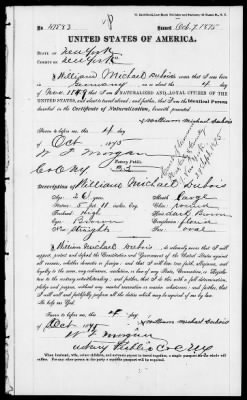 No. 47883 Issued Oct. 7, 1875
UNITED STATES OF AMERICA.
STATE OF New York
COUNTY OF New York
I William Michael Dubois do swear that I was born in
Germany
of Nov. 1849 that I am a NATURALIZED AND LOYAL CITIZEN OF THE
UNITED STATES, and about to travel abroad; and further, that I am the identical Person
described in the Certificate of Naturalization, herewith presented.
William Michael Dubois
Sworn to before me this 4 day
of Oct 1875
W. F. Morgan
Notary Public
Co NY
Description of William Michael Dubois
Age: 26 years. Mouth: Large
Stature: 5 feet 11 inches, Eng. Chin:
Forehead: High Hair: dark Brown
Eyes: Brown Complexion:
Nose: straight Face: oval
I William Michael Dubois, do solemnly swear that I will
support, protect and defend the Constitution and Government of the United States against
all enemies, whether domestic or foreign; and that I will bear true faith, allegiance, and
loyalty to the same, any ordinance, resolution, or law of any State, Convention, or Legisla-
ture to the contrary notwithstanding; and further, that I do this with a full determination,
pledge and purpose, without any mental reservation or evasion whatsoever; and further, that
I will well and faithfully perform all the duties which may be required of me by law.
So help me God.
Sworn to before me this 4 day
of Oct 1875 William Michael Dubois
W. F. Morgan
Notary Public Co NY
When husband, wife, minor children, and servants expect to travel together, a single passport for the whole will
suffice. For any other person in the party, a separate passport will be required.